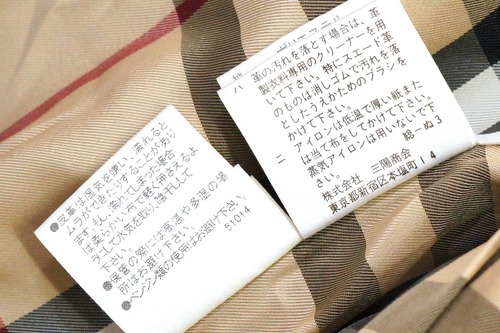 ●皮革は湿気を嫌い、濡れると
ムラができたりすることがあり
ます。もし濡れてしまった場合
は柔らかい布で軽く押さえるよ
うにして水気を取り、陰干しして
下さい。
●保管の際には高温や多湿の場
所はお避け下さい。
●ベンジン類の使用はお避け下さい。
51014
ポリエステル
八 革の汚れを落とす場合は、革
製衣料専用のクリーナーを用
いて下さい。特にスエード革
のものは消しゴムで汚れを落
としたうえかためのブラシを
かけて下さい。
ニ アイロンは低温で厚い紙また
は当て布をしてかけて下さい。
蒸気アイロンは用いないで下
さい。
総ーぬ3
株式会社 三陽商会
東京都新宿区本塩町14